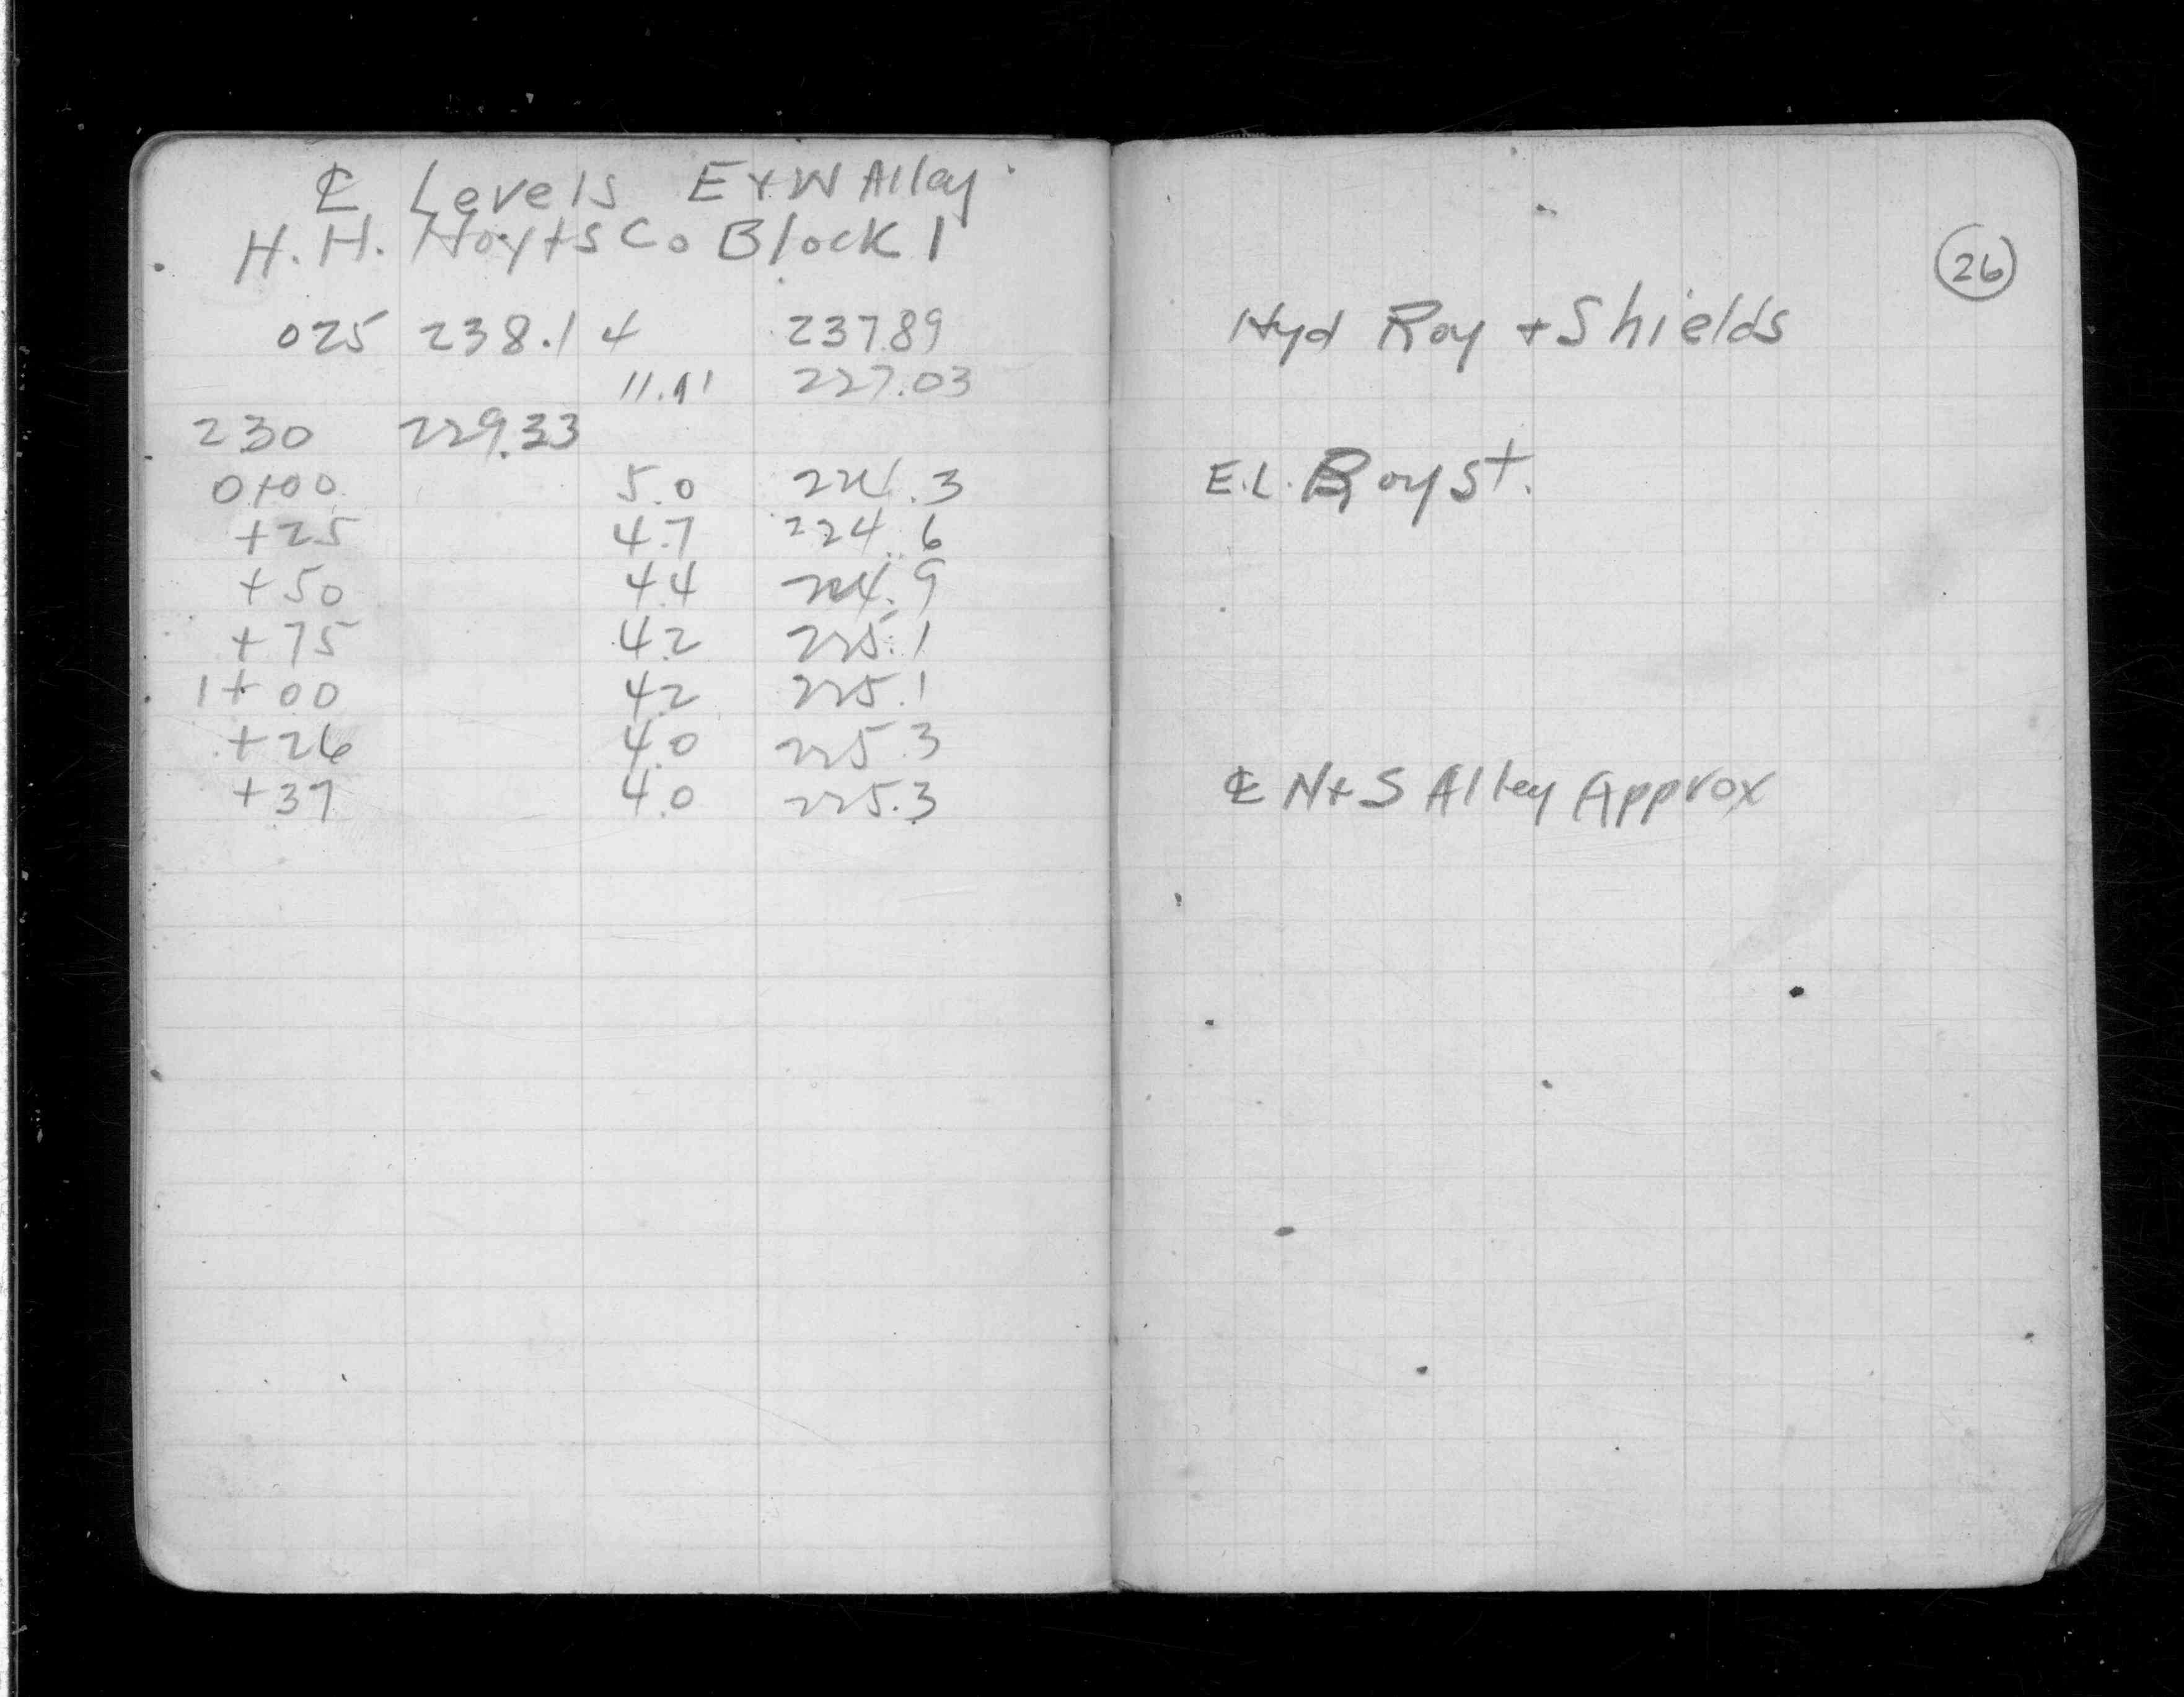 ℄ Levels E+W Alley
H.H. Hoyts Co Block 1
025 238.14 237.89
11.11 227.03
230 229.33
0+00 5.0 224.3
+25 4.7 224.6
+50 4.4 224.9
+75 4.2 225.1
1+00 4.2 225.1
+26 4.0 225.3
+37 4.0 225.3
26
Hyd Roy + Shields
E.L. Roy St.
℄ N+S Alley Approx